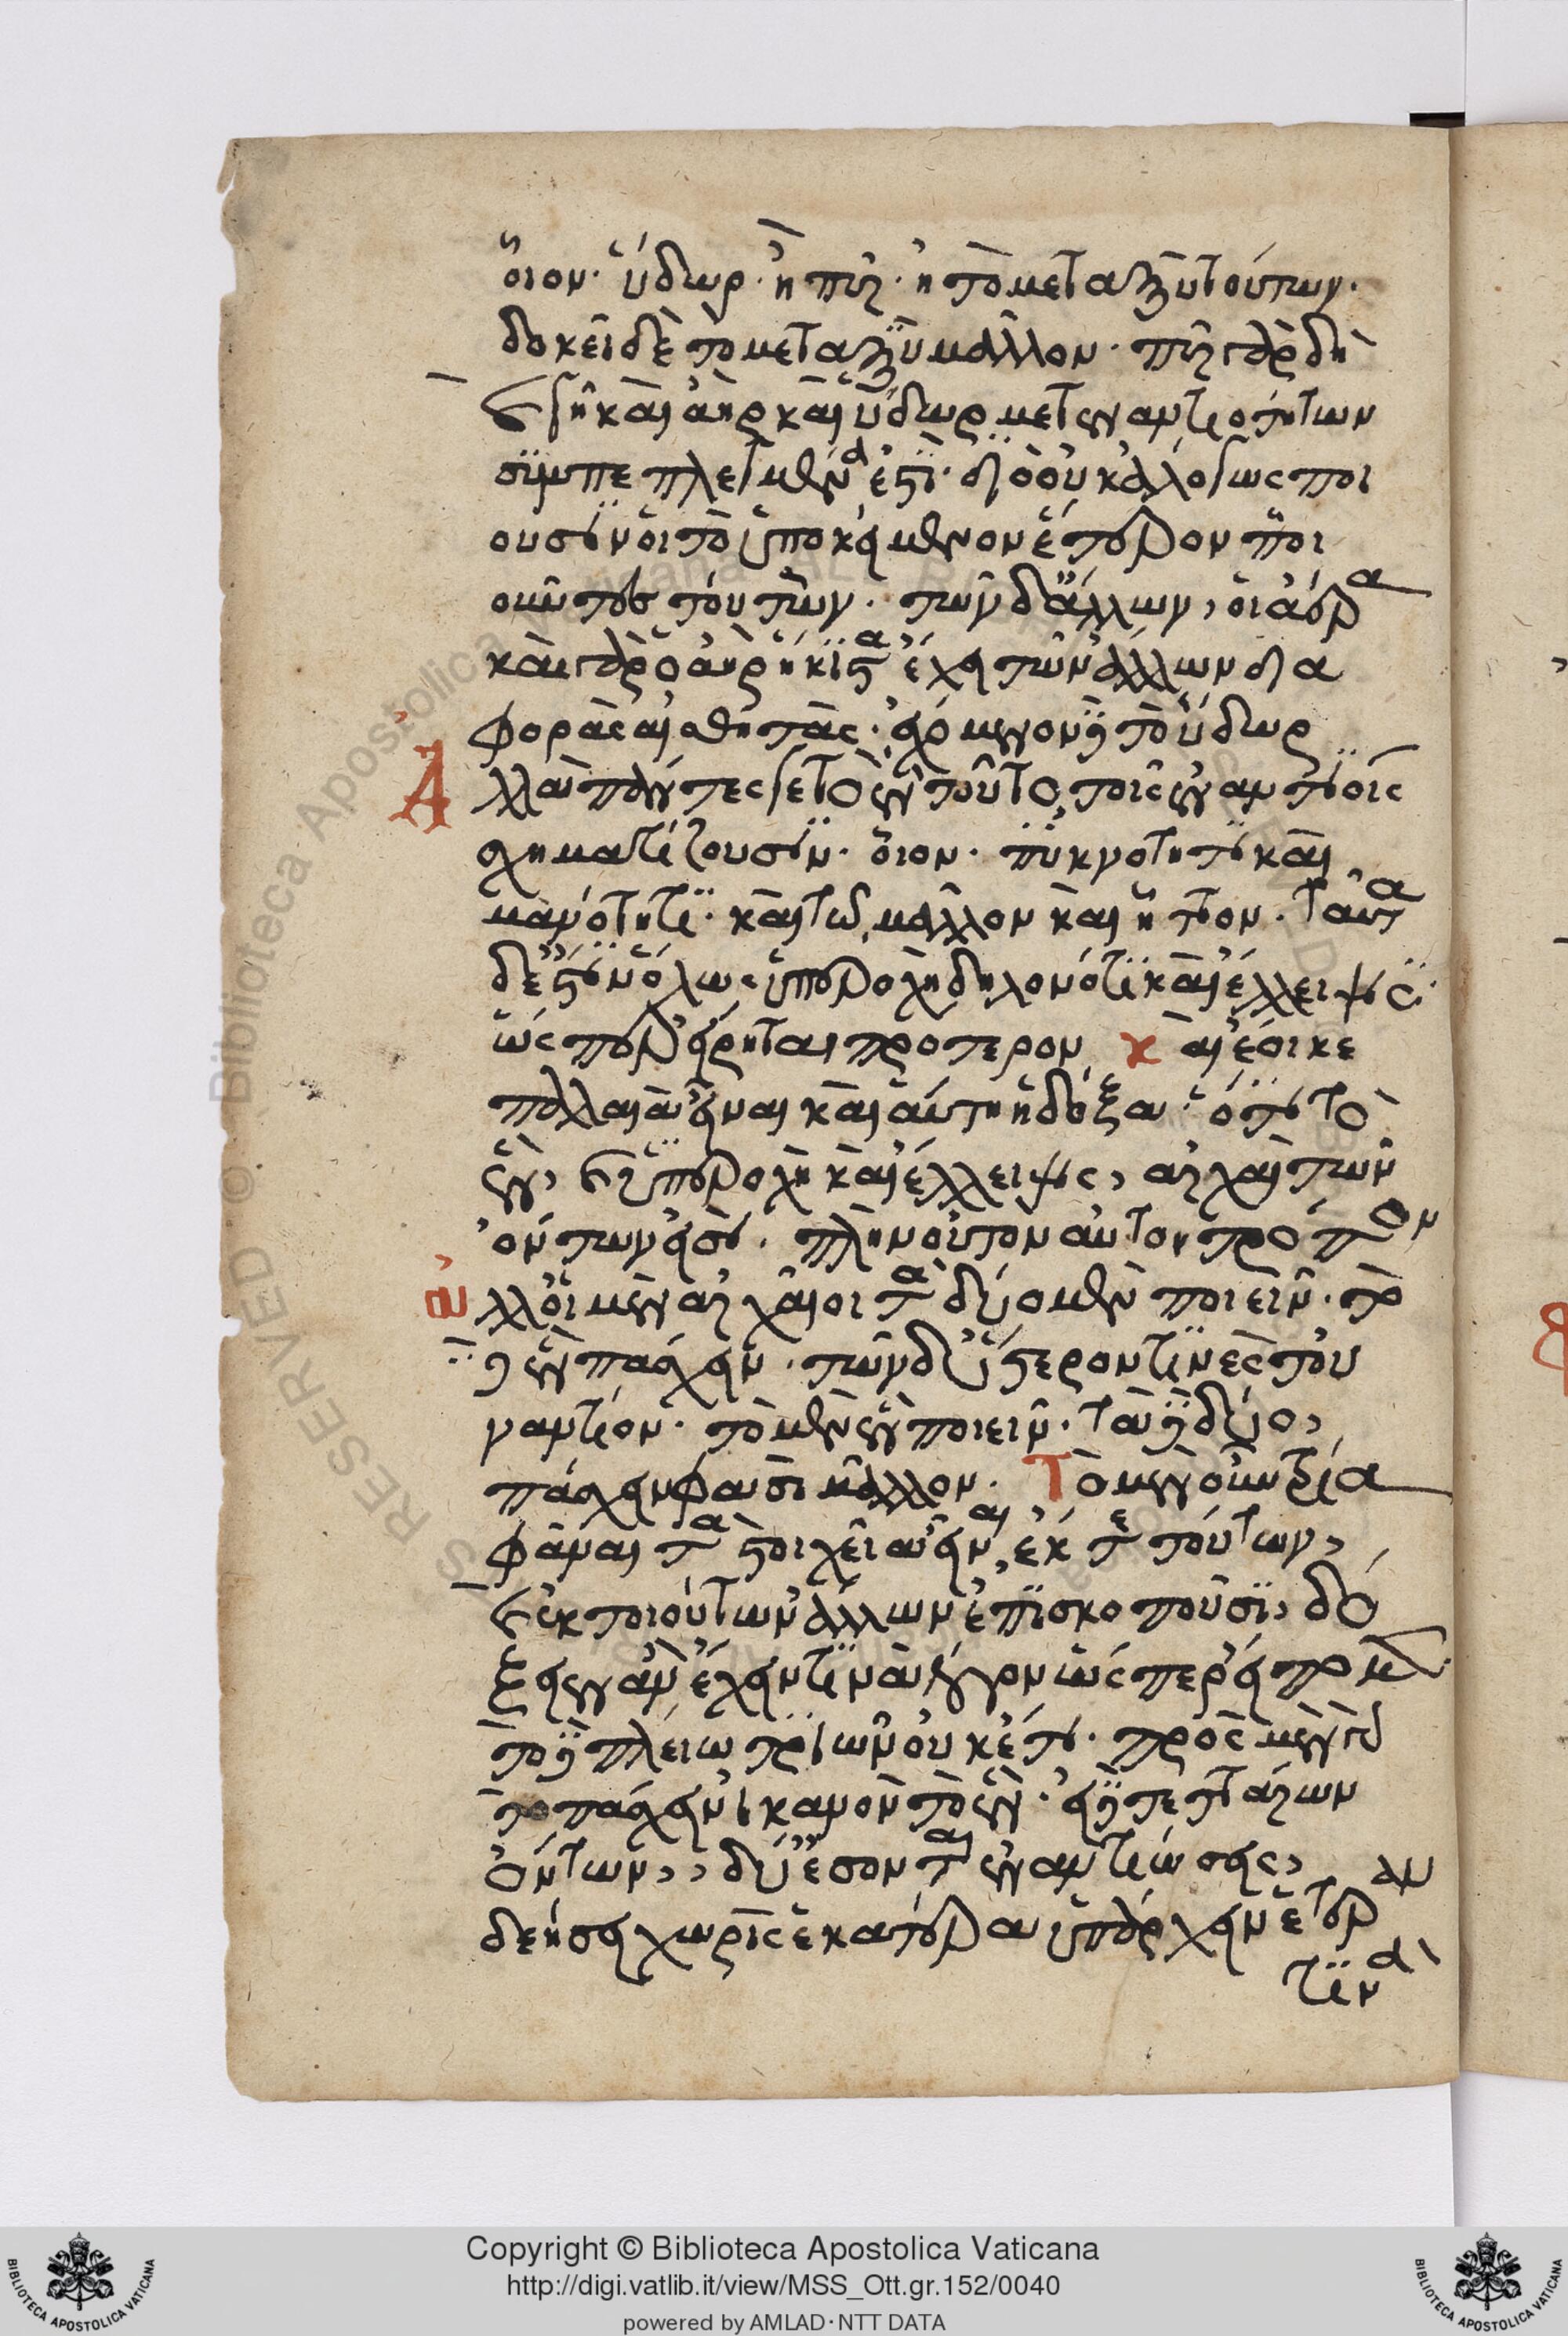 οἷον· ὕδωρ· ἢ πῦρ· ἢ τὸ μεταξὺ τούτων·
δοκεῖ δὲ τὸ μεταξὺ μᾶλλον· πῦρ γὰρ δὴ
καὶ γῆ καὶ ἀὴρ καὶ ὕδωρ μετ ἐναντιοτήτων
συμπεπλεγμένα ἐστί· διὸ οὐκ ἀλόγως ποι
οῦσιν οἱ τὸ ὑποκείμενον ἕτερον ποι
οῦντες τούτων· τῶν δ' ἄλλων, οἱ ἀέρα
καὶ γὰρ ὁ ἀὴρ ἥκιστα ἔχει τῶν ἄλλων δια
φορὰς αἰσθητάς· ἐχόμενον δὲ τὸ ὕδωρ
Ἀλλὰ πάντες γε τὸ ἓν τοῦτο τοῖς ἐναντίοις
σχηματίζουσιν· οἷον· πυκνότητι καὶ
μανότητι· καὶ τῷ μᾶλλον καὶ ἧττον. ταῦτα
δ' ἐστὶν ὅλως ὑπεροχὴ δηλονότι καὶ ἔλλειψις·
ὥσπερ εἴρηται πρότερον καὶ ἔοικε
παλαιὰ εἶναι καὶ αὕτη ἡ δόξα· ὅτι τὸ
ἓν, καὶ ὑπεροχὴ καὶ ἔλλειψις, ἀρχαὶ τῶν
ὄντων εἰσί· πλὴν οὐ τὸν αὐτὸν τρόπον
ἀλλ' οἱ μὲν ἀρχαῖοι τὰ δύο μὲν ποιεῖν· τὸ
δὲ ἓν πάσχειν· τῶν δ' ὕστερον τινὲς του
ναντίον· τὸ μὲν ἓν ποιεῖν· τὰ δὲ δύο,
πάσχειν φασὶ μᾶλλον· Τὸ μὲν οὖν τρία
φάναι τὰ στοιχεῖα εἶναι ἔκ τε τούτων,
καὶ ἐκ τοιούτων ἄλλων ἐπισκοποῦσι, δό
ξειεν ἂν ἔχειν τινὰ λόγον ὥσπερ εἴπομεν·
τὸ δὲ πλείω τριῶν οὐκέτι· πρὸς μὲν γὰρ
τὸ πάσχειν ἱκανὸν τὸ ἕν· εἰ δὲ τεττάρων
ὄντων, δύ' ἔσονται ἐναντιώσεις,
δεήσει χωρὶς ἑκατέρα ὑπάρχειν ἑτέραν
τινὰ
Copyright © Biblioteca Apostolica Vaticana
http://digi.vatlib.it/view/MSS_Ott.gr.152/0040
powered by AMLAD·NTT DATA